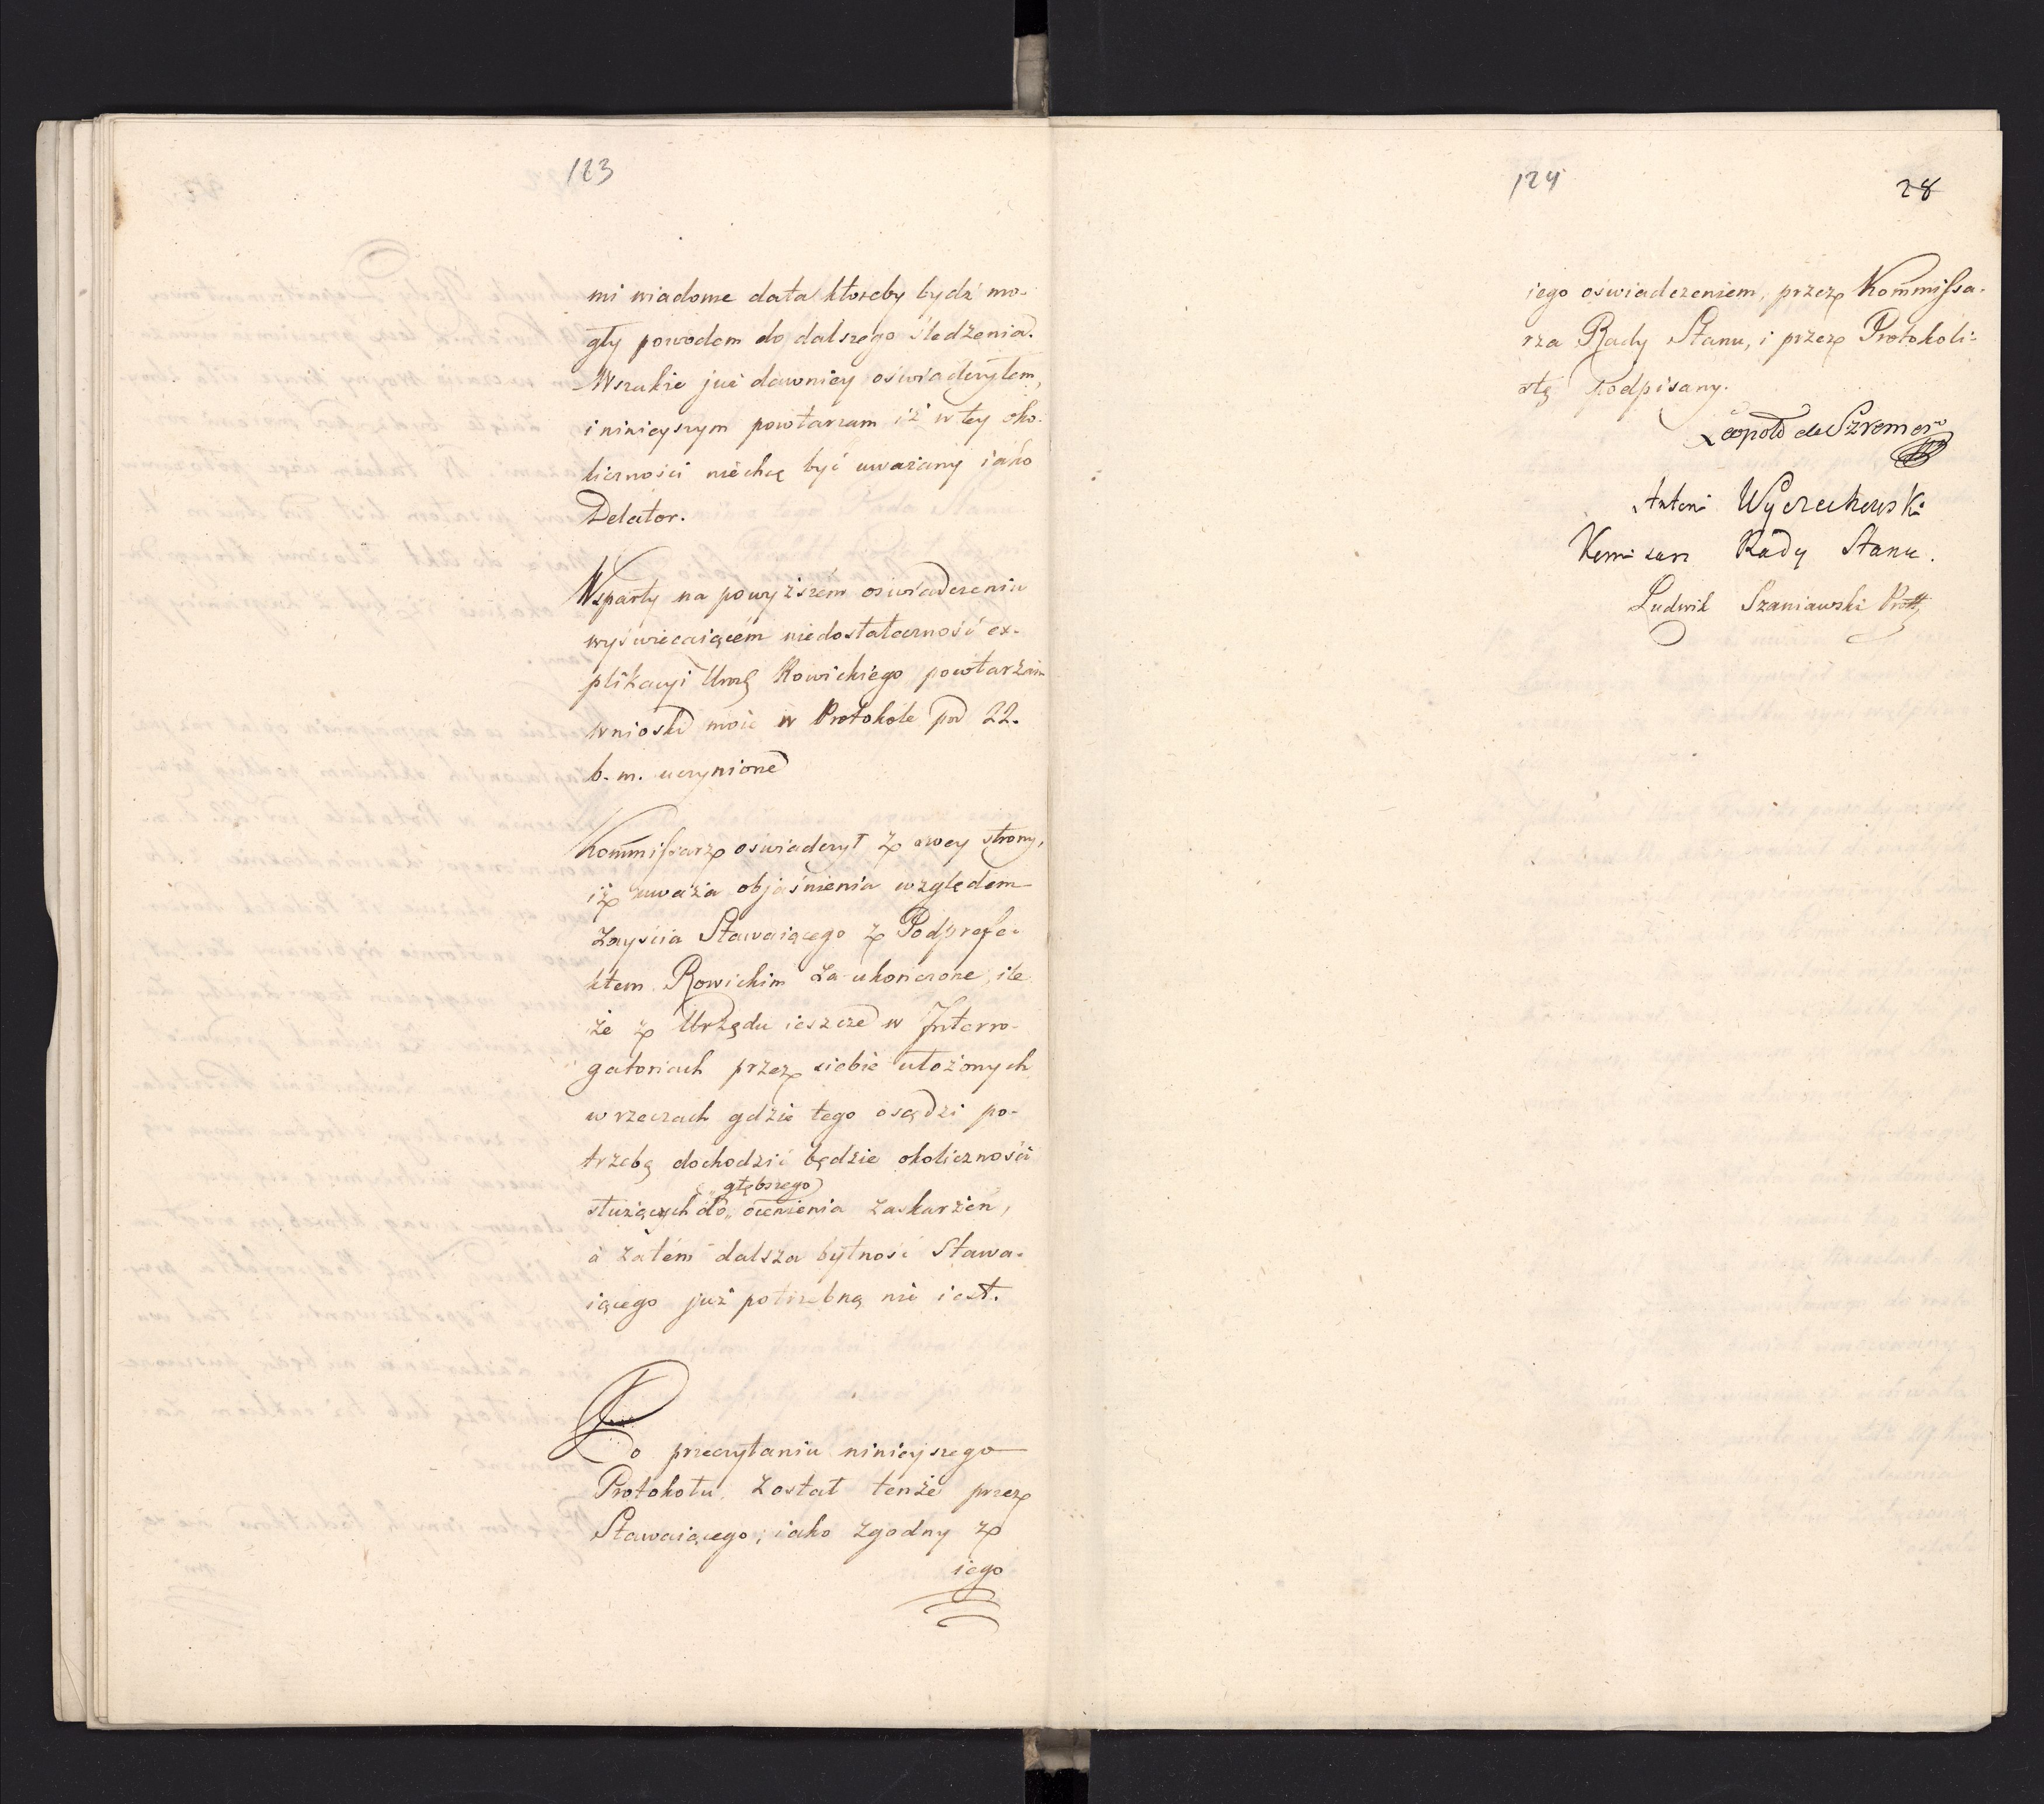 123
mi wiadome data któreby bydź mo-
gły powodem do dalszego śledzenia.
Wszakże już dawniey oświadczyłem,
i ninieyszym powtarzam iż w tey oko-
liczności niechcę być uważany iako
Delator.
Wsparty na powyższém oświadczeniu
wyświecaiącém niedostateczność ex-
plikacyi Urzę Rowickiego powtarzam
wnioski moie w Protokole pod 22.
b. m. uczynione
Kommissarz oświadczył z swey strony,
iż uważa objaśnienia względem
Zayścia Stawaiącego z Podprefe-
ktem Rowickim za ukończone, ile
że z Urzędu ieszcze w Interro-
gatoriach przez siebie ułożonych
w rzeczach gdzie tego osądzi po-
trzebę dochodzić będzie okoliczności
głębszego
służących do ocenienia zaskarżeń,
a zatém dalsza bytność Stawa-
iącego już potrzebną nie iest.
Po przeczytaniu ninieyszego
Protokołu został tenże przez
Stawaiącego, iako zgodny z
iego
124
28
iego oświadczeniem, przez Kommissa-
rza Rady Stanu, i przez Protokoli-
stę podpisany.
Leopold de Szremer
Antoni Wyczechowski
Komisarz Rady Stanu.
Ludwik Szaniawski Prott